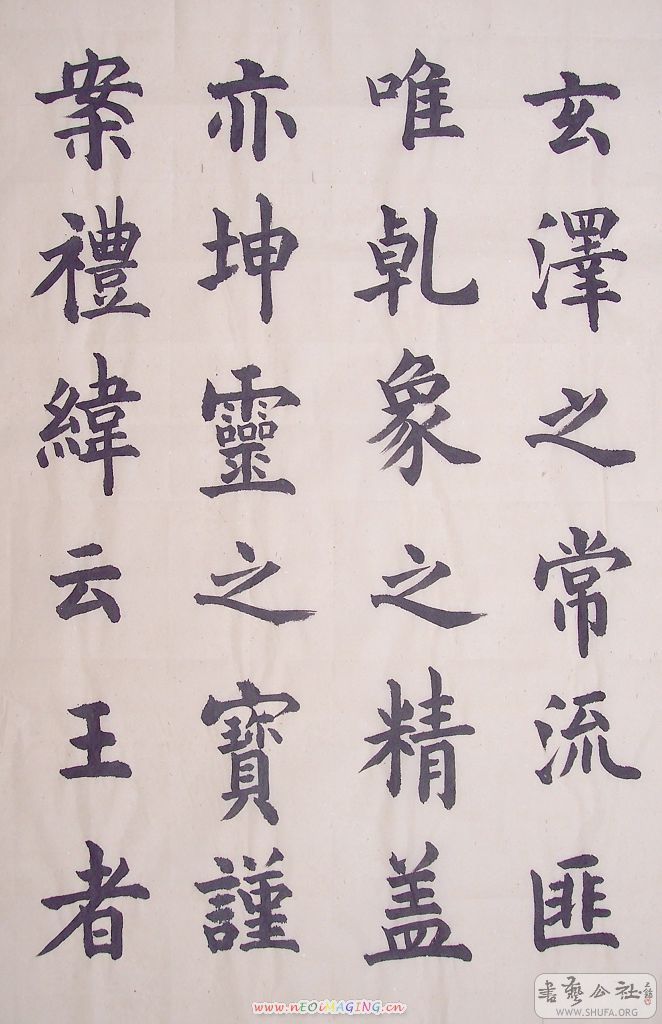 玄澤之常流匪
唯乹象之精盖
亦坤靈之寶謹
案禮緯云王者
www.nEOiMAGiNG.cn
書藝公社
WWW.SHUFA.ORG